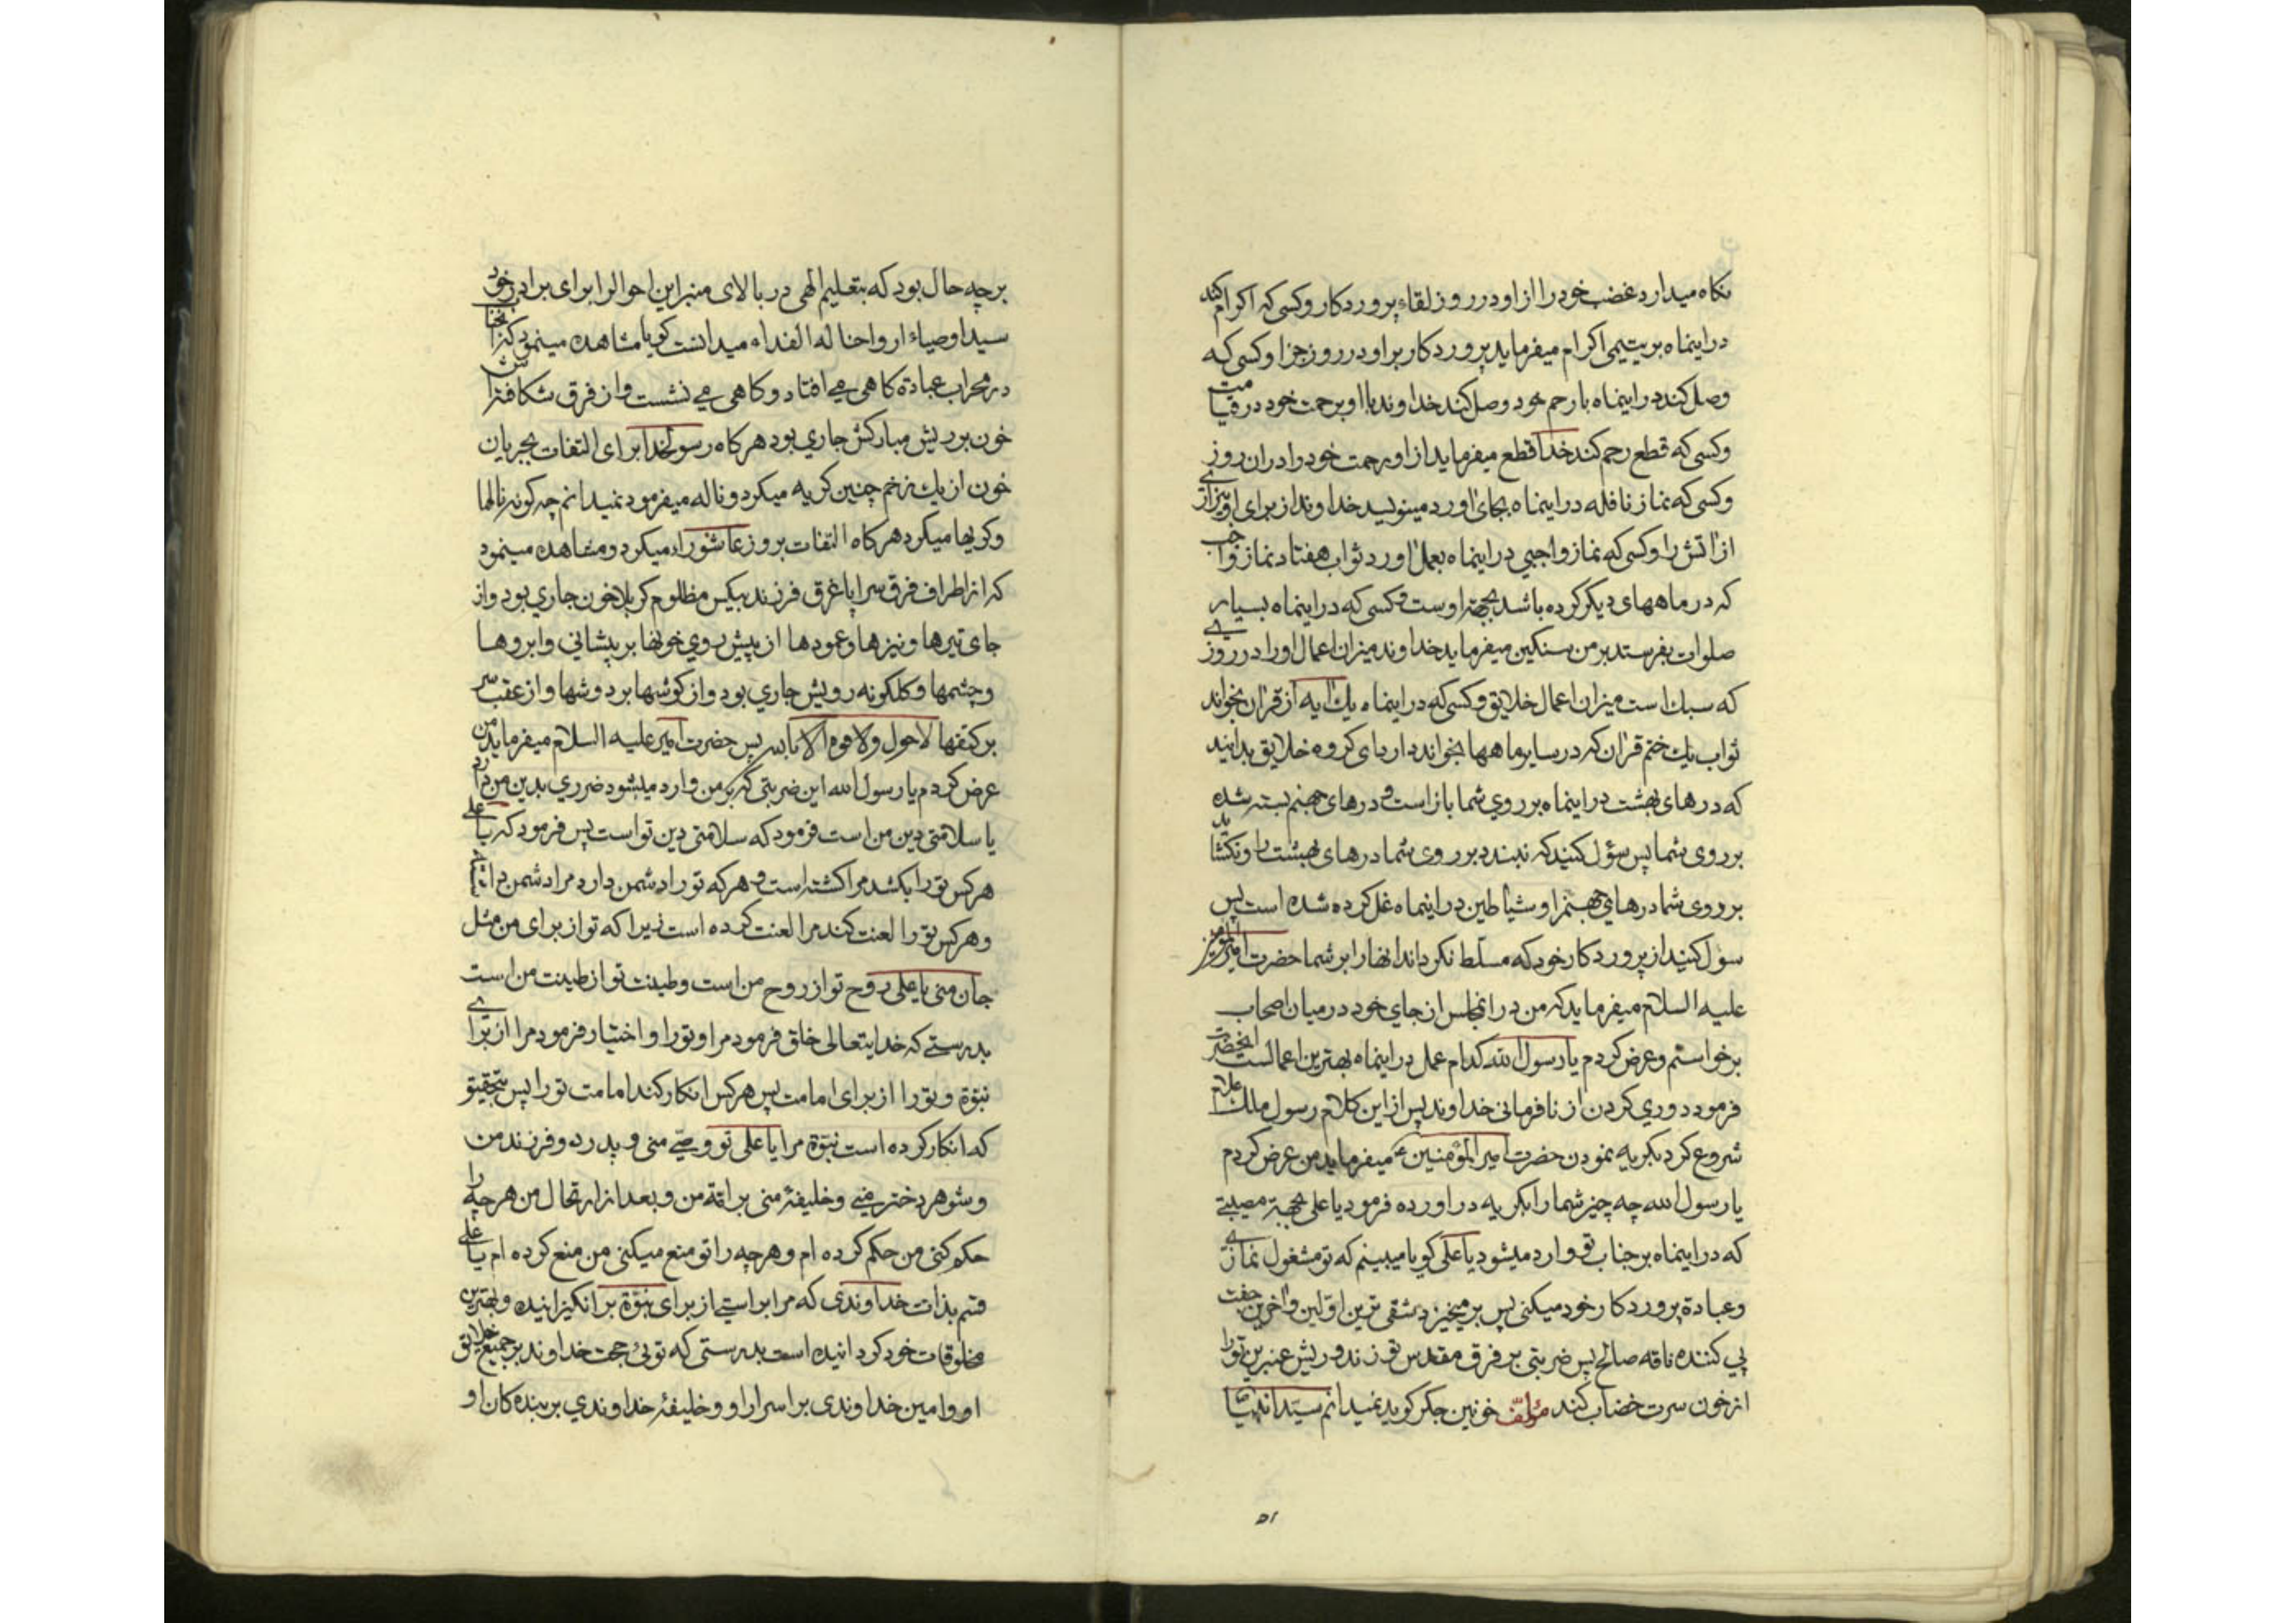 نکاه میدارد غضب خود را از او در روز لقاء پروردکار وکسی که اکرام کند
در اینماه بر یتیمی اکرام میفرماید پروردکار بر او در روز جزا وکسی که
وصل کند در اینماه با رحم خود وصل کند خداوند با او برحمت خود در قیامت
وکسی که قطع رحم کند خدا قطع میفرماید از او رحمت خود را در ان روز
وکسی که نماز نافله در اینماه بجای اورد مینویسد خداوند از برای او بیزاری
از اتش را وکسی که نماز واجبی در اینماه بعمل اورد ثواب هفتاد نماز واجب
که در ماههای دیکر کرده باشد بجهة اوست وکسی که در اینماه بسیار
صلوات بفرستد بر من سنکین میفرماید خداوند میزان اعمال او را در روزی
که سبک است میزان اعمال خلایق وکسی که در اینماه یک ایه از قران بخواند
ثواب یک ختم قران که در سایر ماهها بخواند دارد ای کروه خلایق بدانید
که درهای بهشت در اینماه بر روی شما باز است و درهای جهنم بسته شده
بر روی شما پس سؤل کنید که نبندد بر روی شما درهای بهشت را ونکشاید
بر روی شما درهای جهنم را و شیاطین در اینماه غل کرده شده است پس
سؤل کنید از پروردکار خود که مسلّط نکرداند انها را بر شما حضرت امیرالمؤمنین
علیه السلام میفرماید که من در انمجلس از جای خود در میان اصحاب
برخواستم وعرض کردم یا رسول الله کدام عمل در اینماه بهترین اعمالست انحضرت
فرمود دوری کردن از نافرمانی خداوند پس از این کلام رسول ملک علام
شروع کرد بکریه نمودن حضرت امیرالمؤمنین ع میفرماید من عرض کردم
یا رسول الله چه چیز شما را بکریه در اورده فرمود یا علی بجهة مصیبتی
که در اینماه بر جناب تو وارد میشود یا علی کویا میبینم که تو مشغول نمازی
وعبادة پروردکار خود میکنی پس برمیخیزد شقی ترین اوّلین واخرین جفت
پی کننده ناقه صالح پس ضربتی بر فرق مقدس تو زند وریش عنبرین تو را
از خون سرت خضاب کند مؤلف خونین جکر کوید نمیدانم سیّد انبیا
۵۱
بر چه حال بود که بتعلیم الهی در بالای منبر این احوال را برای برادر خود
سید اوصیاء ارواحنا له الفداء میدانست کویا مشاهده مینمود که انجناب
در محراب عبادة کاهی می افتاد وکاهی می نشست واز فرق شکافته اش
خون بر ریش مبارکش جاری بود هرکاه رسولخدا برای التفات بجریان
خون از یک زخم چنین کریه میکرد وناله میفرمود نمیدانم چه کونه نالها
وکریها میکرد هرکاه التفات بروز عاشورا میکرد ومشاهده مینمود
که از اطراف فرق سراپا غرق فرزند بیکس مظلوم کربلا خون جاری بود واز
جای تیرها ونیزها وعمودها از پیش روی خونها بر پیشانی وابروها
وچشمها وکلکونه رویش جاری بود واز کوشها بر دوشها واز عقب سر
بر کتفها لا حول ولا قوة الا بالله پس حضرت امیر علیه السلام میفرماید من
عرض کردم یا رسول الله این ضربتی که بر من وارد میشود ضرری بدین من دارد
یا سلامتی دین من است فرمود که سلامتی دین تو است پس فرمود که یا علی
هرکس تو را بکشد مرا کشته است و هرکه تو را دشمن دارد مرا دشمن داشته
وهرکس تو را لعنت کند مرا لعنت کرده است زیرا که تو از برای من مثل
جان منی یا علی روح تو از روح من است وطینت تو از طینت من است
بدرستی که خدایتعالی خلق فرمود مرا وتو را و اختیار فرمود مرا از برای
نبوّة وتو را از برای امامت پس هرکس انکار کند امامت تو را پس بتحقیق
که انکار کرده است نبوّة مرا یا علی تو وصّی منی و پدر دو فرزند من
وشوهر دختر منی وخلیفهٔ منی بر امّة من وبعد از ارتحال من هرچه را
حکم کنی من حکم کرده ام وهرچه را تو منع میکنی من منع کرده ام یا علی
قسم بذات خداوندی که مرا براستی از برای نبوّة برانکیزانیده وبهترین
مخلوقات خود کردانیده است بدرستی که توئی حجت خداوند بر جمیع خلایق
او وامین خداوندی بر اسرار او وخلیفهٔ خداوندی بر بنده کان او